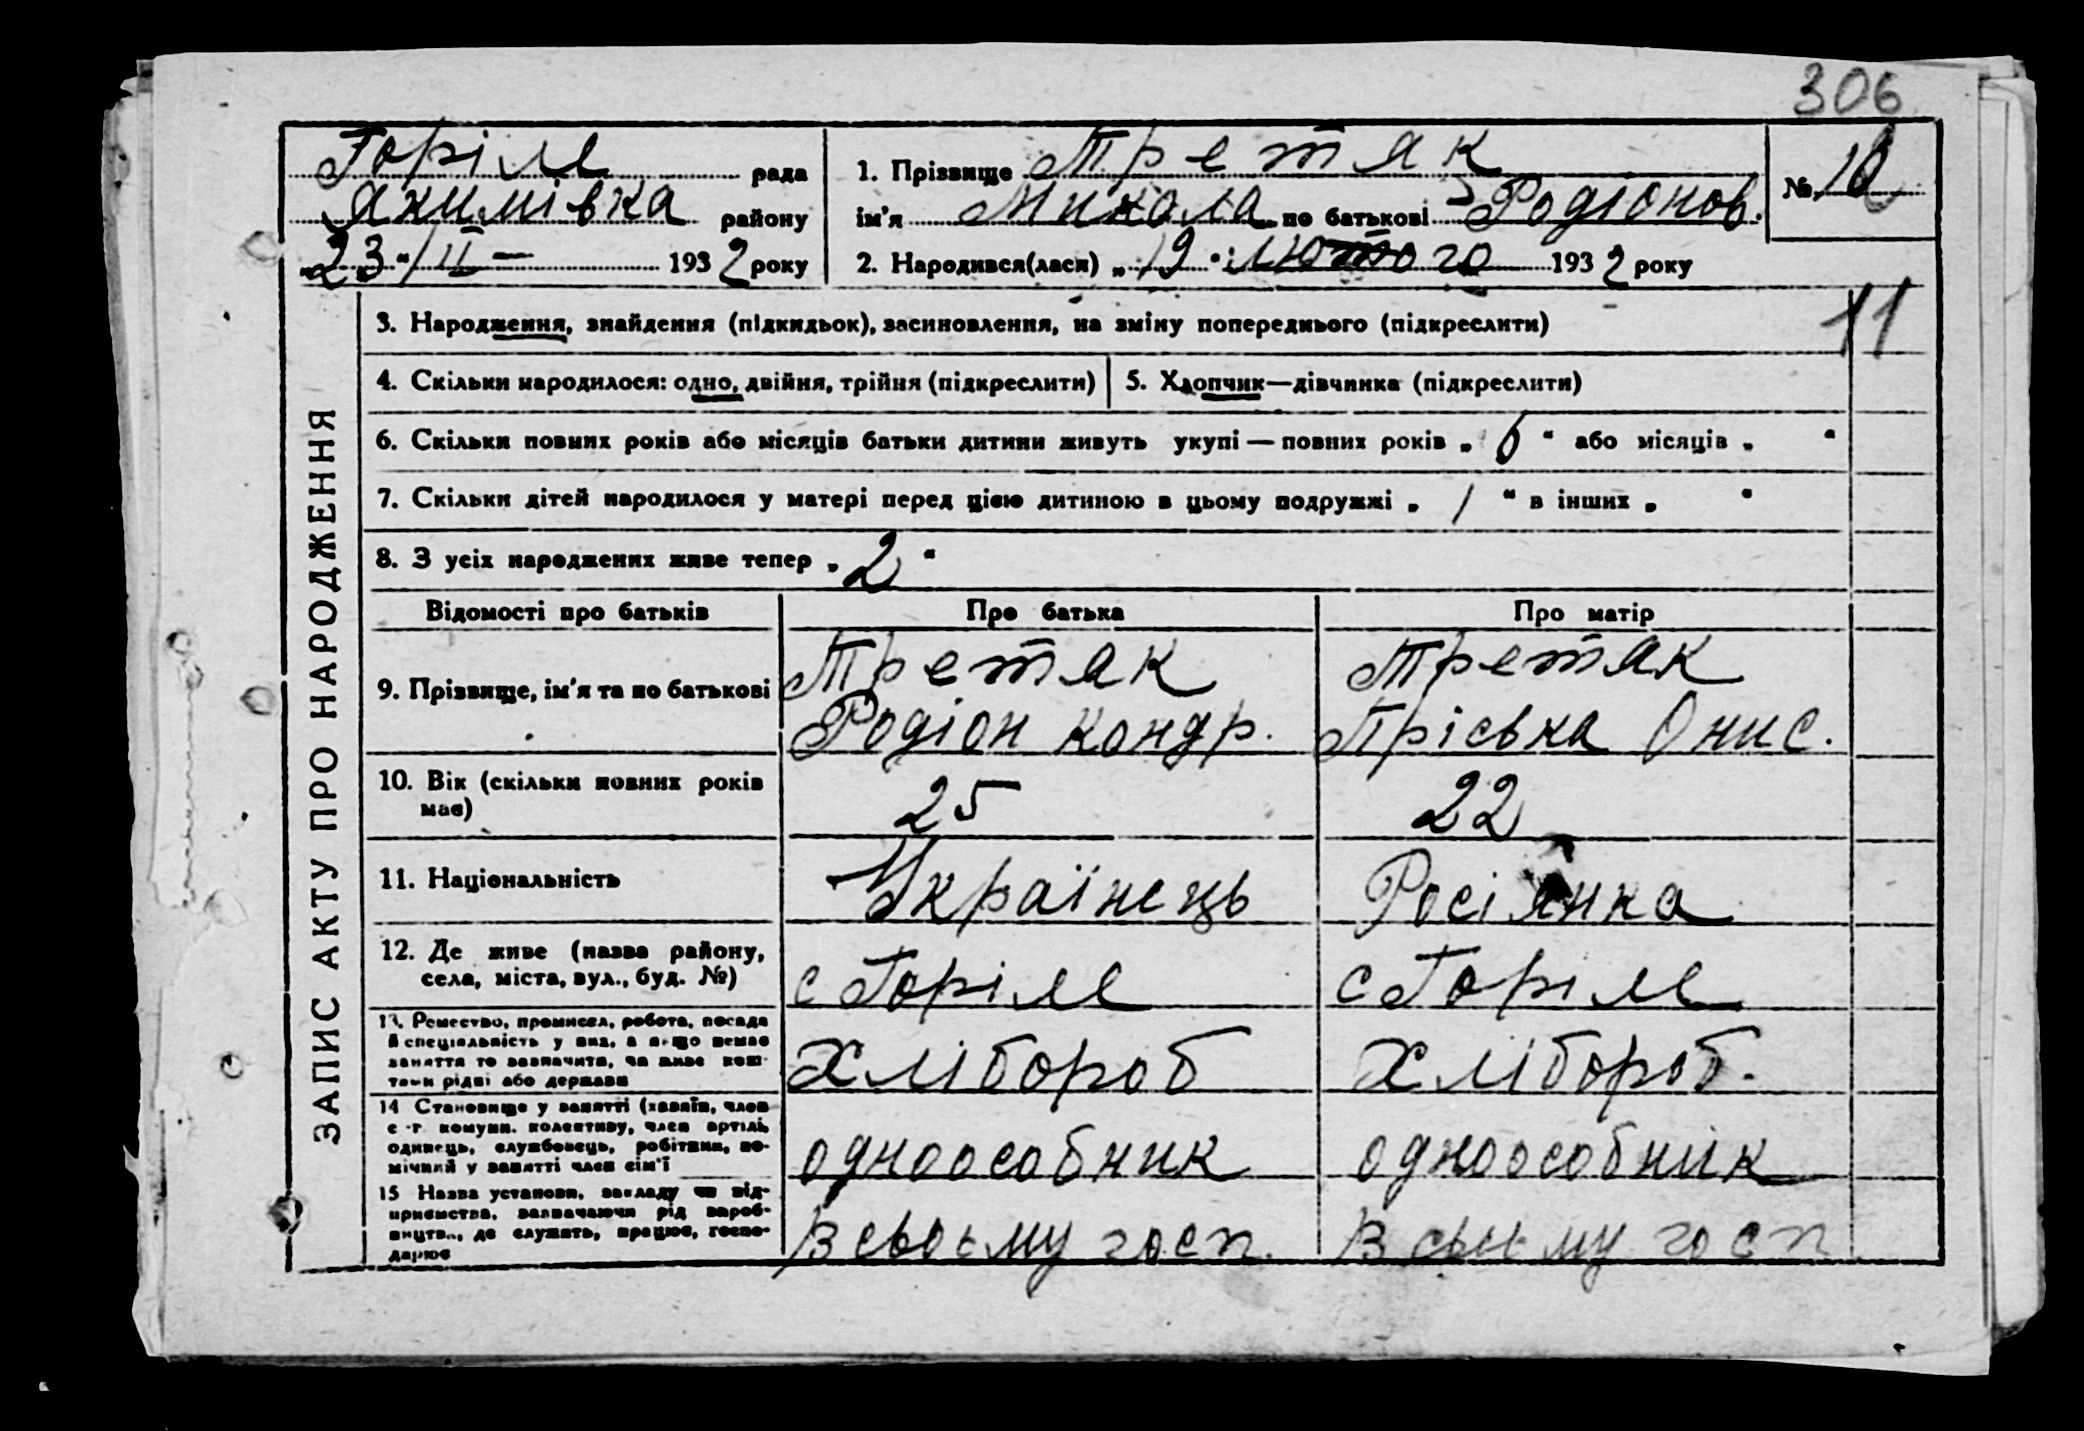 306
Горіле рада
Якимівка району
„23“/ІІ – 1932 року
1. Прізвище Третяк
ім'я Микола по батькові Родіонов.
2. Народився(лася) „19“ лютого 1932 року
№ 10
11
ЗАПИС АКТУ ПРО НАРОДЖЕННЯ
3. Народження, знайдення (підкидьок), засиновлення, на зміну попереднього (підкреслити)
4. Скільки народилося: одно, двійня, трійня (підкреслити)
5. Хлопчик—дівчинка (підкреслити)
6. Скільки повних років або місяців батьки дитини живуть укупі — повних років „ 6 “ або місяців „ “
7. Скільки дітей народилося у матері перед цією дитиною в цьому подружжі „ 1 “ в інших „ “
8. З усіх народжених живе тепер „ 2 “
Відомості про батьків
Про батька
Про матір
9. Прізвище, ім'я та по батькові
Третяк
Родіон Кондр.
Третяк
Пріська Онис.
10. Вік (скільки повних років
має)
25
22
11. Національність
Українець
Росіянка
12. Де живе (назва району,
села, міста, вул., буд. №)
с Горіле
с Горіле
13. Ремество, промисел, робота, посада
й спеціяльність у них, а якщо немає
заняття то зазначити, чи живе кош-
тами рідні або держави
Хлібороб
Хлібороб.
14 Становище у занятті (хазяїн, член
с.-г. комуни. колективу, член артілі,
одинець, службовець, робітник, по-
мічний у занятті член сім'ї
одноособник
одноособник
15 Назва установи, закладу чи під-
приємства, зазначаючи рід вироб-
ництва, де служить, працює, госпо-
дарює
В сьоьму госп.
В сьоьму госп